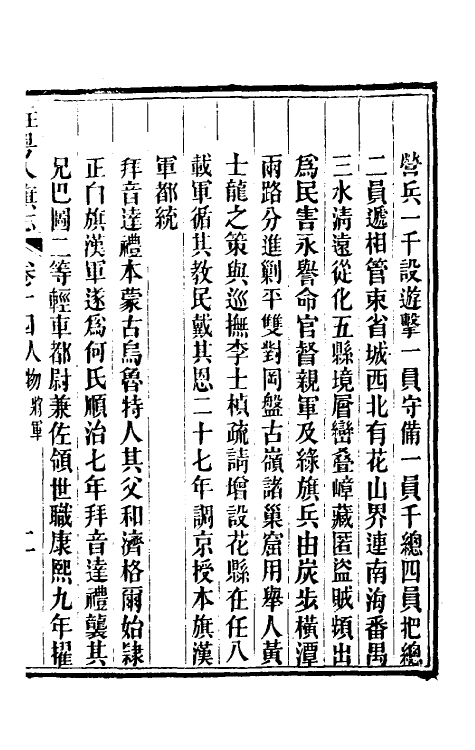 營兵一千設遊擊一員守備一員千總四員把總
二員遞相管束省城西北有花山界連南海番禺
三水淸遠從化五縣境層巒叠嶂藏匿盜賊頻出
爲民害永譽命官督親軍及綠旗兵由炭步橫潭
兩路分進剿平雙對岡盤古嶺諸巢窟用舉人黃
士龍之策與巡撫李士楨疏請增設花縣在任八
載軍循其教民戴其恩二十七年調京授本旗漢
軍都統
拜音達禮本蒙古烏魯特人其父和濟格爾始隸
正白旗漢軍遂爲何氏順治七年拜音達禮襲其
兄巴圖二等輕車都尉兼佐領世職康熙九年擢
駐粵八旗志 卷十四人物 將軍 二